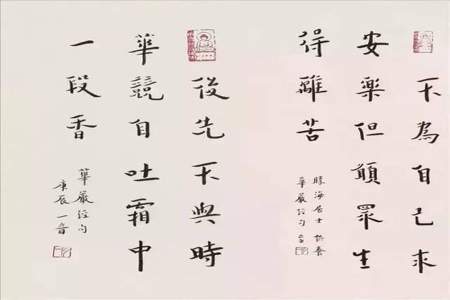 不為自己求
安樂但願眾生
得離苦
勝海居士 供養
華嚴經句
後先不與時
華競自吐霜中
一段香
華嚴經句
庚辰 一音